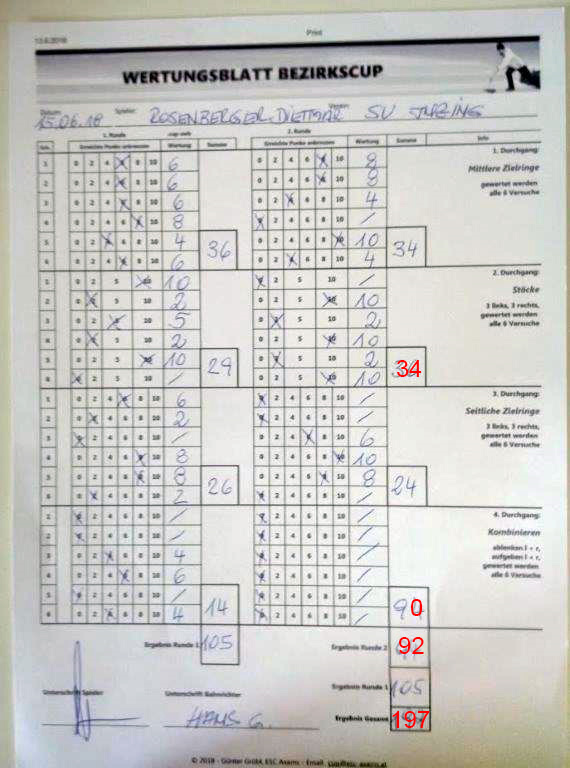 13.6.2018 Print
WERTUNGSBLATT BEZIRKSCUP
Datum: 15.06.18 Spieler: ROSENBERGER DIETMAR Verein: SV
1. Runde 2. Runde
Erreichte Punkte ankreuzen Wertung Summe Erreichte Punkte ankreuzen Wertung Summe Info
1 0 2 4 6 8 10 6 0 2 4 6 8 10 8 1. Durchgang:
2 0 2 4 6 8 10 6 0 2 4 6 8 10 8 Mittlere Zielringe
3 0 2 4 6 8 10 6 0 2 4 6 8 10 4 gewertet werden
4 0 2 4 6 8 10 8 0 2 4 6 8 10 / alle 6 Versuche
5 0 2 4 6 8 10 4 36 0 2 4 6 8 10 10 34
6 0 2 4 6 8 10 6 0 2 4 6 8 10 4
1 0 2 5 10 10 0 2 5 10 / 2. Durchgang:
2 0 2 5 10 2 0 2 5 10 10 Stöcke
3 0 2 5 10 5 0 2 5 10 2 3 links, 3 rechts,
4 0 2 5 10 2 0 2 5 10 10 gewertet werden
alle 6 Versuche
5 0 2 5 10 10 29 0 2 5 10 2 34
6 0 2 5 10 / 0 2 5 10 10
1 0 2 4 6 8 10 6 0 2 4 6 8 10 / 3. Durchgang:
2 0 2 4 6 8 10 2 0 2 4 6 8 10 / Seitliche Zielringe
3 0 2 4 6 8 10 / 0 2 4 6 8 10 6 3 links, 3 rechts,
4 0 2 4 6 8 10 8 0 2 4 6 8 10 10 gewertet werden
alle 6 Versuche
5 0 2 4 6 8 10 8 26 0 2 4 6 8 10 8 24
6 0 2 4 6 8 10 2 0 2 4 6 8 10 /
1 0 2 4 6 8 10 / 0 2 4 6 8 10 / 4. Durchgang:
2 0 2 4 6 8 10 / 0 2 4 6 8 10 / Kombinieren
3 0 2 4 6 8 10 4 0 2 4 6 8 10 / ablenken l + r,
aufgeben l + r,
4 0 2 4 6 8 10 6 0 2 4 6 8 10 / gewertet werden
alle 6 Versuche
5 0 2 4 6 8 10 / 14 0 2 4 6 8 10 / 90
6 0 2 4 6 8 10 4 0 2 4 6 8 10 /
Ergebnis Runde 1 105 Ergebnis Runde 2 92
Unterschrift Spieler Unterschrift Bahnrichter Ergebnis Runde 1 105
HANS G. Ergebnis Gesamt 197
© 2018 - Günter Größl, ESC Axams - Email: